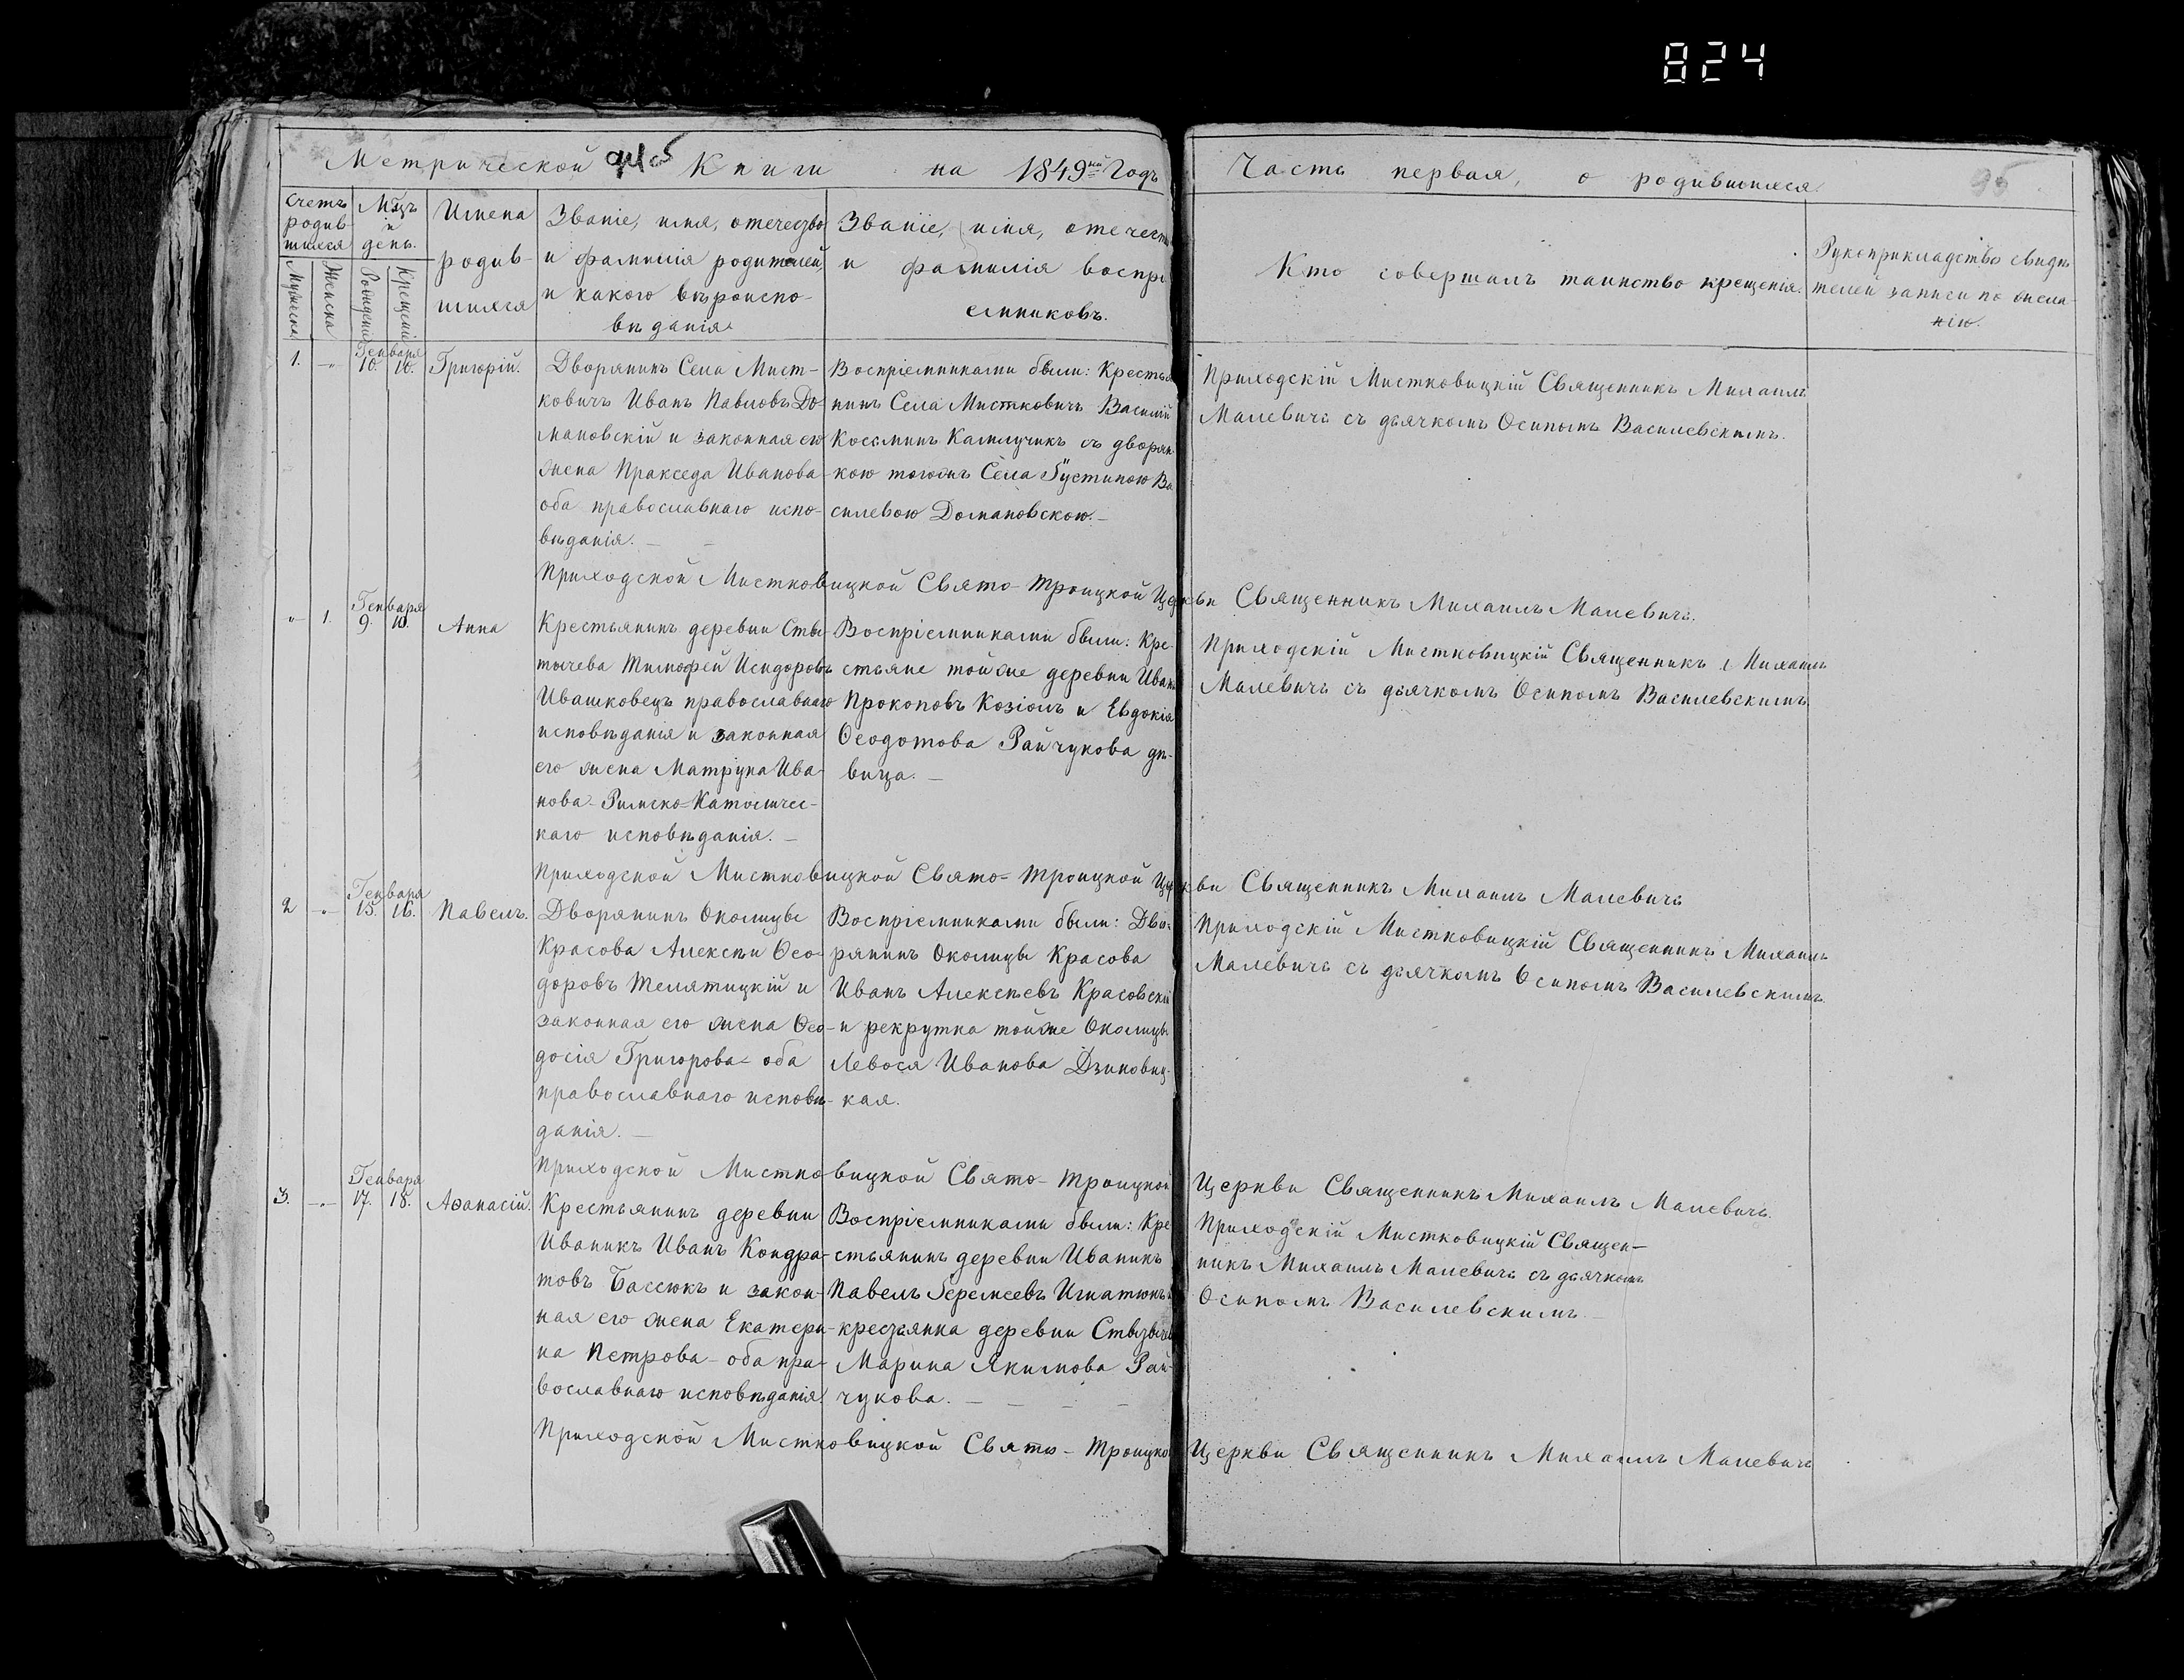 824
Метрической Книги на 1849ый Годъ
Часть первая, о родившихся
95
Счетъ родившихся
Мужеска
Женска
Мѣцъ и день.
Рожденія
Крещенія
Имена родившихся
Званіе, имя, отечество
и фамилія родителей,
и какого вѣроиспо-
вѣданія
Званіе, имя, отечество
и фамилія воспрі
емниковъ.
Кто совершалъ таинство крещенія.
Рукоприкладство свидѣ
телей записи по жела-
нію.
1.
Генваря
10. 10.
Григорій.
Дворянинъ Села Мист-
ковичъ Иванъ Павловъ До-
мановскій и законная его
жена Пракседа Иванова
оба православнаго испо-
вѣданія.
Воспріемниками были: Крестья
нинъ Села Мистковичъ Василій
Косьминъ Камлучикъ съ дворян-
кою тогожъ Села Іустиною Ва
силевою Домановскою.
Приходскій Мистковицкій Священникъ Михаилъ
Малевичъ съ дьячкомъ Осипомъ Василевскимъ.
Приходской Мистковицкой Свято-Троицкой Церкви Священникъ Михаилъ Малевичъ.
1.
Генваря
9. 10.
Анна
Крестьянинъ деревни Сты-
тычева Тимофей Исидоровъ
Ивашковецъ православнаго
исповѣданія и законная
его жена Матруна Ива-
нова Римско-Католичес-
каго исповѣданія.
Воспріемниками были: Кре-
стьяне той же деревни Иванъ
Прокоповъ Козіолъ и Евдокія
Ѳеодотова Райчукова дѣ-
вица.
Приходскій Мистковицкій Священникъ Михаилъ
Малевичъ съ дьячкомъ Осипомъ Василевскимъ
Приходской Мистковицкой Свято-Троицкой Церкви Священникъ Михаилъ Малевичъ
2
Генваря
15. 16.
Павелъ.
Дворянинъ Околицы
Красова Алексѣй Ѳео-
доровъ Телятицкій и
законная его жена Ѳео-
досія Григорова оба
православнаго исповѣ-
данія.
Воспріемниками были: Дво-
рянинъ Околицы Красова
Иванъ Алексѣевъ Красовскій
и рекрутка той же Околицы
Левося Иванова Дзиковиц-
кая.
Приходскій Мистковицкій Священникъ Михаилъ
Малевичъ съ дьячкомъ Осипомъ Василевскимъ.
Приходской Мистковицкой Свято-Троицкой Церкви Священникъ Михаилъ Малевичъ.
3.
Генваря
17. 18.
Аѳанасій.
Крестьянинъ деревни
Иваникъ Иванъ Кондра-
товъ Басюкъ и закон-
ная его жена Екатери-
на Петрова оба пра-
вославнаго исповѣданія
Воспріемниками были: Кре
стьянинъ деревни Иваникъ
Павелъ Іеремеевъ Игнатюкъ и
крестьянка деревни
Марина Якимова Рай-
чукова.
Приходскій Мистковицкій Священ-
никъ Михаилъ Малевичъ съ дьячкомъ
Осипомъ Василевскимъ
Приходской Мистковицкой Свято-Троицкой Церкви Священникъ Михаилъ Малевичъ